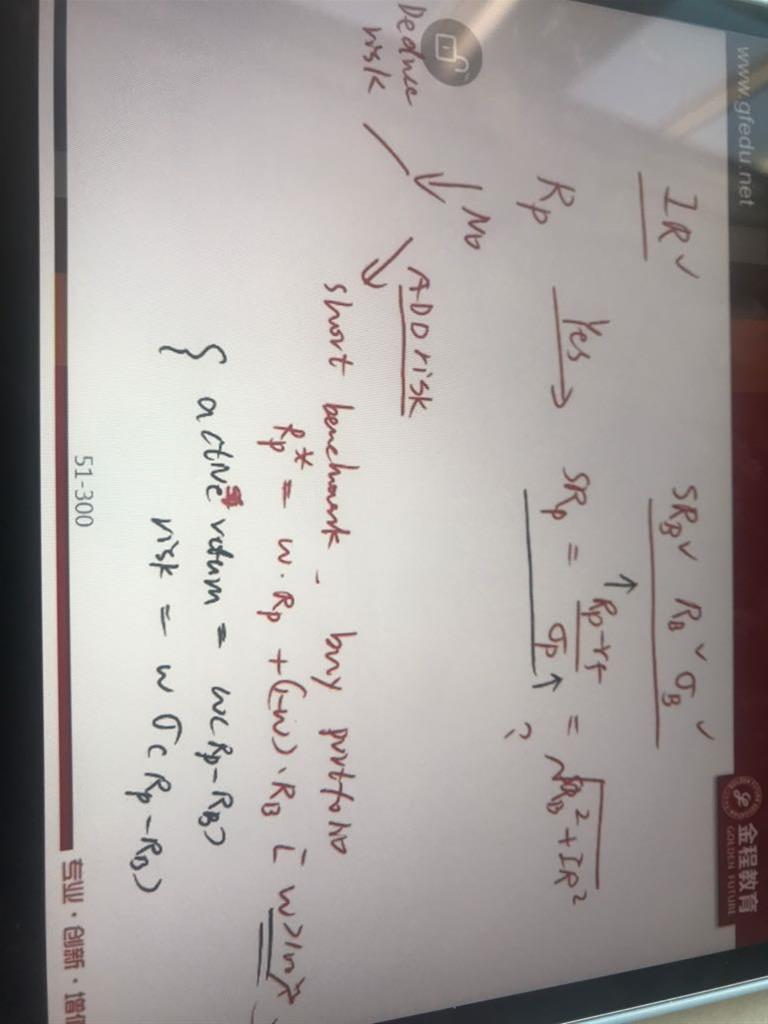 www.gfedu.net
金程教育
GOLDEN FUTURE
IR✓ SR_B✓ R_B✓ σ_B✓
R_p Yes → SR_p = ↑R_p-rf / σ_p↑ = √SR_B²+IR²
?
↓ No
risk
→ ADD risk
short benchmark - buy portfolio
R_p* = w·R_p + (1-w)·R_B
{ active return = w(R_p-R_B)
risk = w σ(R_p-R_B)
51-300
专业·创新·增值